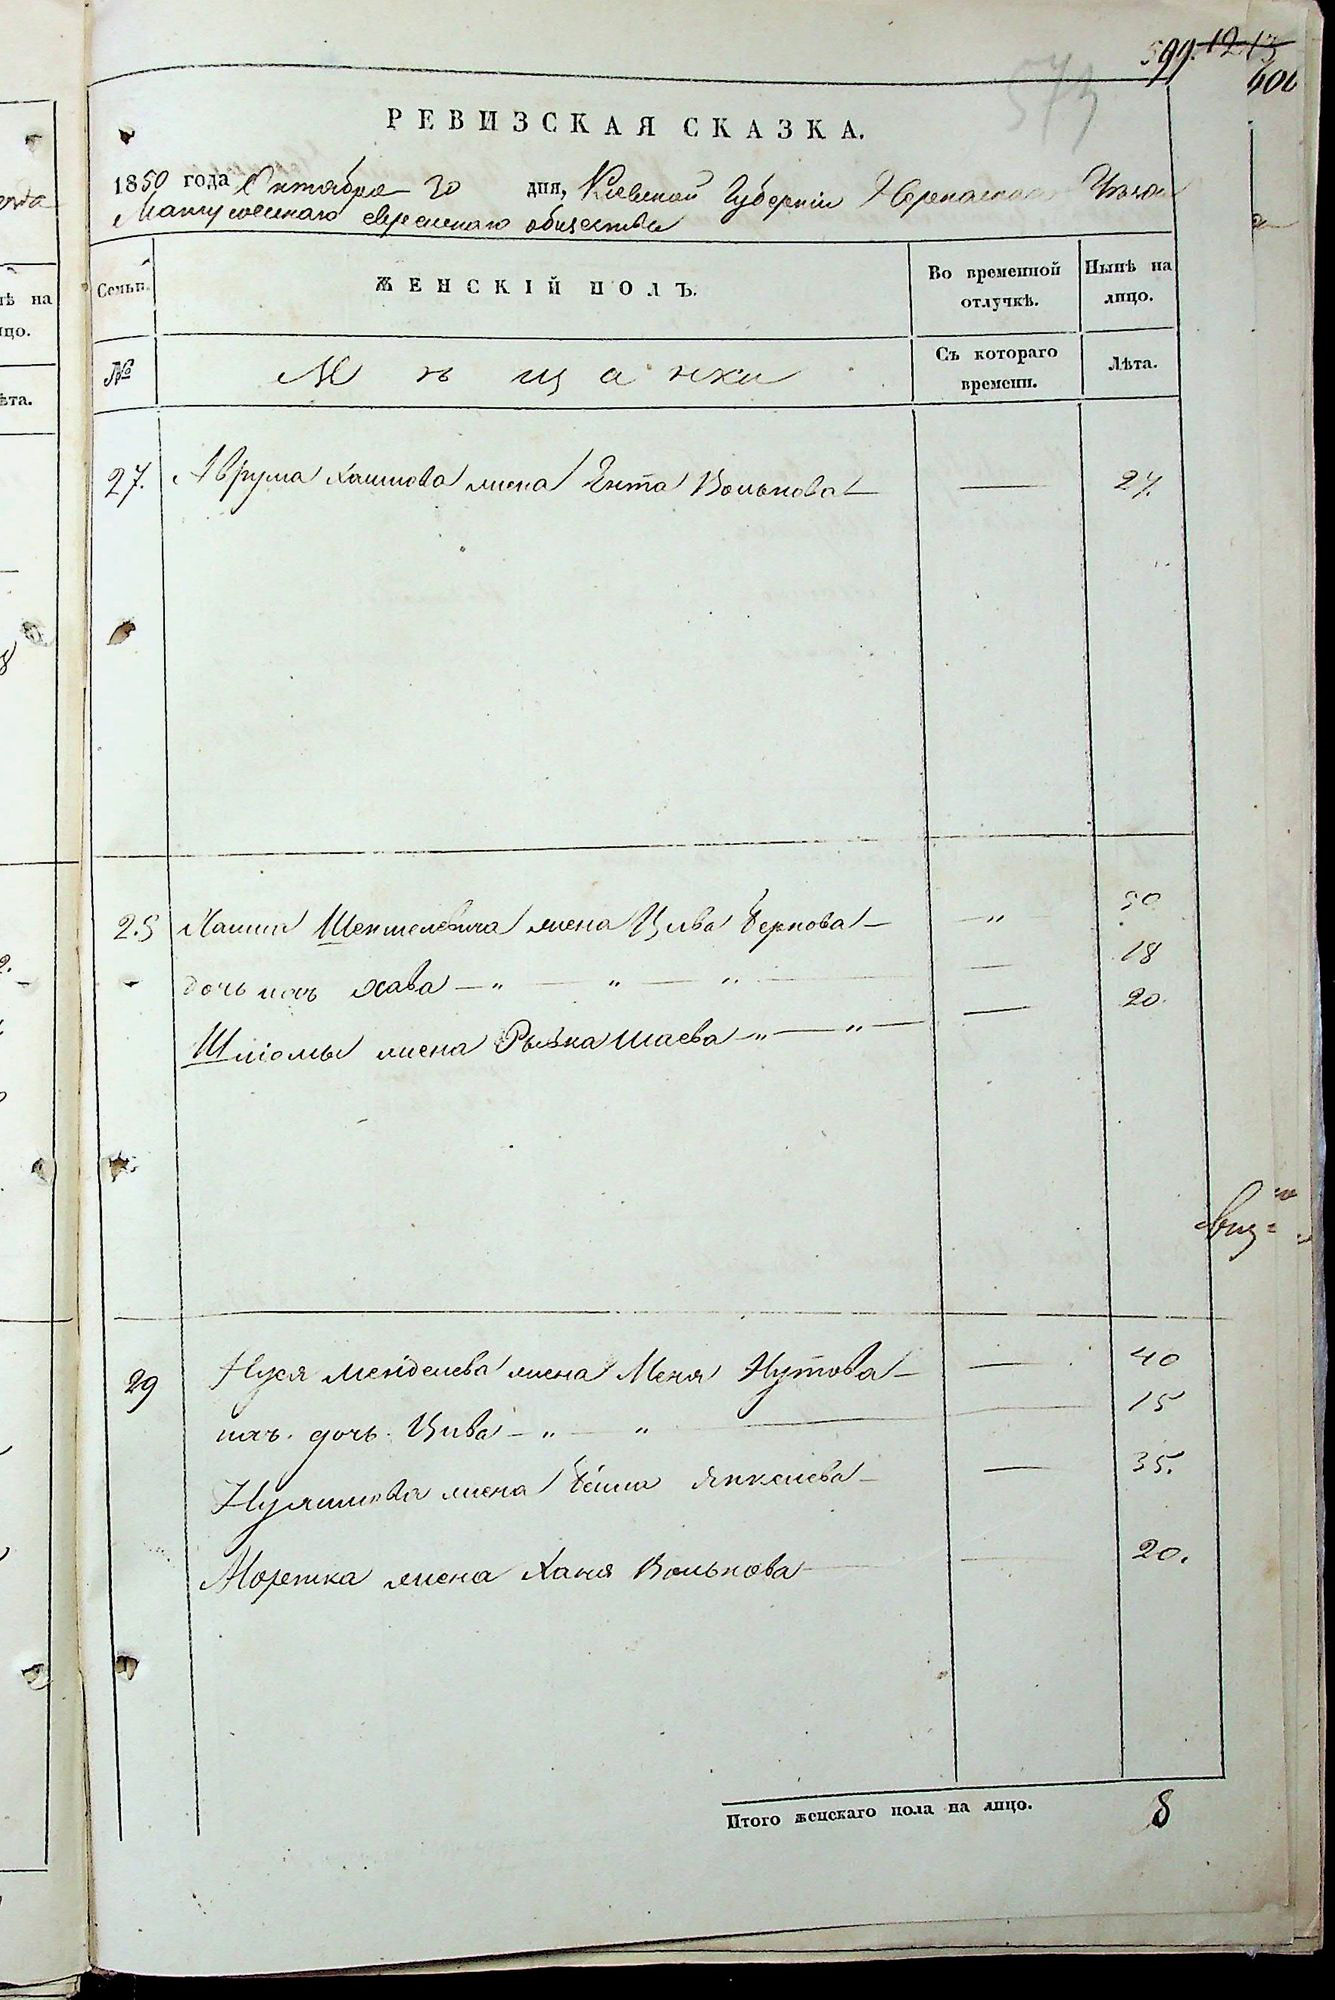 599. 12 13
573
РЕВИЗСКАЯ СКАЗКА.
1850 года Октября 30 дня, Киевской Губернии Черкаскаго Уезда
еврейскаго общества
Семьи.
ЖЕНСКІЙ ПОЛЪ.
Во временной отлучкѣ.
Нынѣ на лицо.
№
Мѣщанки
Съ котораго времени.
Лѣта.
27. Аврума Хаимова жена Ента Волькова — — 27.
Шептелевича жена Цива Беркова — — " 50
дочь ихъ Хава — " — " — " — 18
Шліомы жена Рывка Шаева — " — " — — 20.
29 Нухя Менделева жена Меня Нутова — — 40
ихъ дочь Цива — " — " — 15
жена Бейла Янкелева — — 35.
Морешка жена Ханя Волькова — — 20.
Итого женскаго пола на лицо. 8